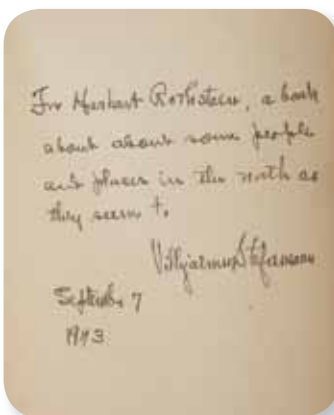 For Herbert Rothstein, a book
about about some people
and places in the north as
they seem to
Vilhjalmur Stefansson
September 7
1943